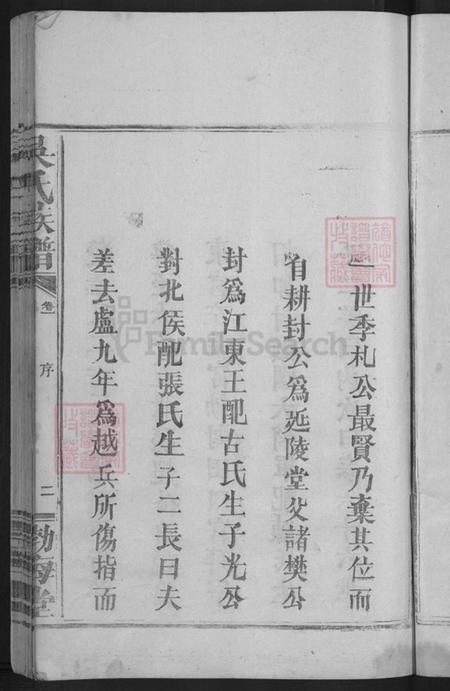 世季札公最賢乃棄其位而
有耕封公爲延陵堂父諸樊公
封爲江東王配古氏生子光公
對北侯配張氏生子二長曰夫
差去盧九年爲越兵所傷指而
吳氏族譜
卷一
序
二
勃海堂
FamilySearch